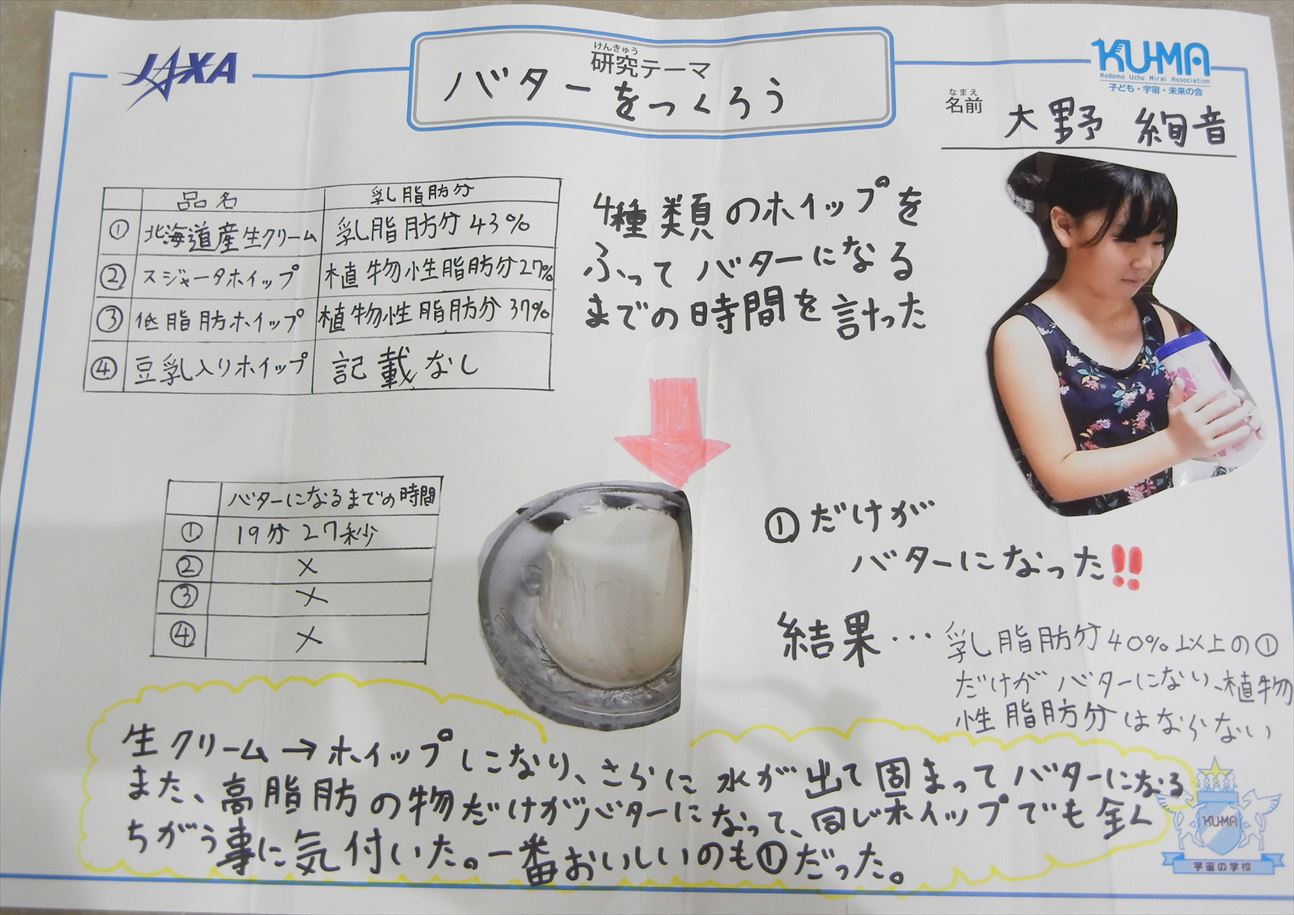 JAXA
けんきゅう
研究テーマ
バターをつくろう
KU-MA
Kodomo Uchu Mirai Association
子ども・宇宙・未来の会
なまえ
名前
大野 絢音
品名 乳脂肪分
① 北海道産生クリーム 乳脂肪分43%
② スジャータホイップ 植物性脂肪分27%
③ 低脂肪ホイップ 植物性脂肪分37%
④ 豆乳入りホイップ 記載なし
4種類のホイップを
ふってバターになる
までの時間を計った
バターになるまでの時間
① 19分27秒
② ×
③ ×
④ ×
①だけが
バターになった!!
結果…乳脂肪分40%以上の①
だけがバターにない、植物
性脂肪分はならない
生クリーム→ホイップしになり、さらに水が出て固まってバターになる
また、高脂肪の物だけがバターになって、同じホイップでも全く
ちがう事に気付いた。一番おいしいのも①だった。
KUMA
宇宙の学校